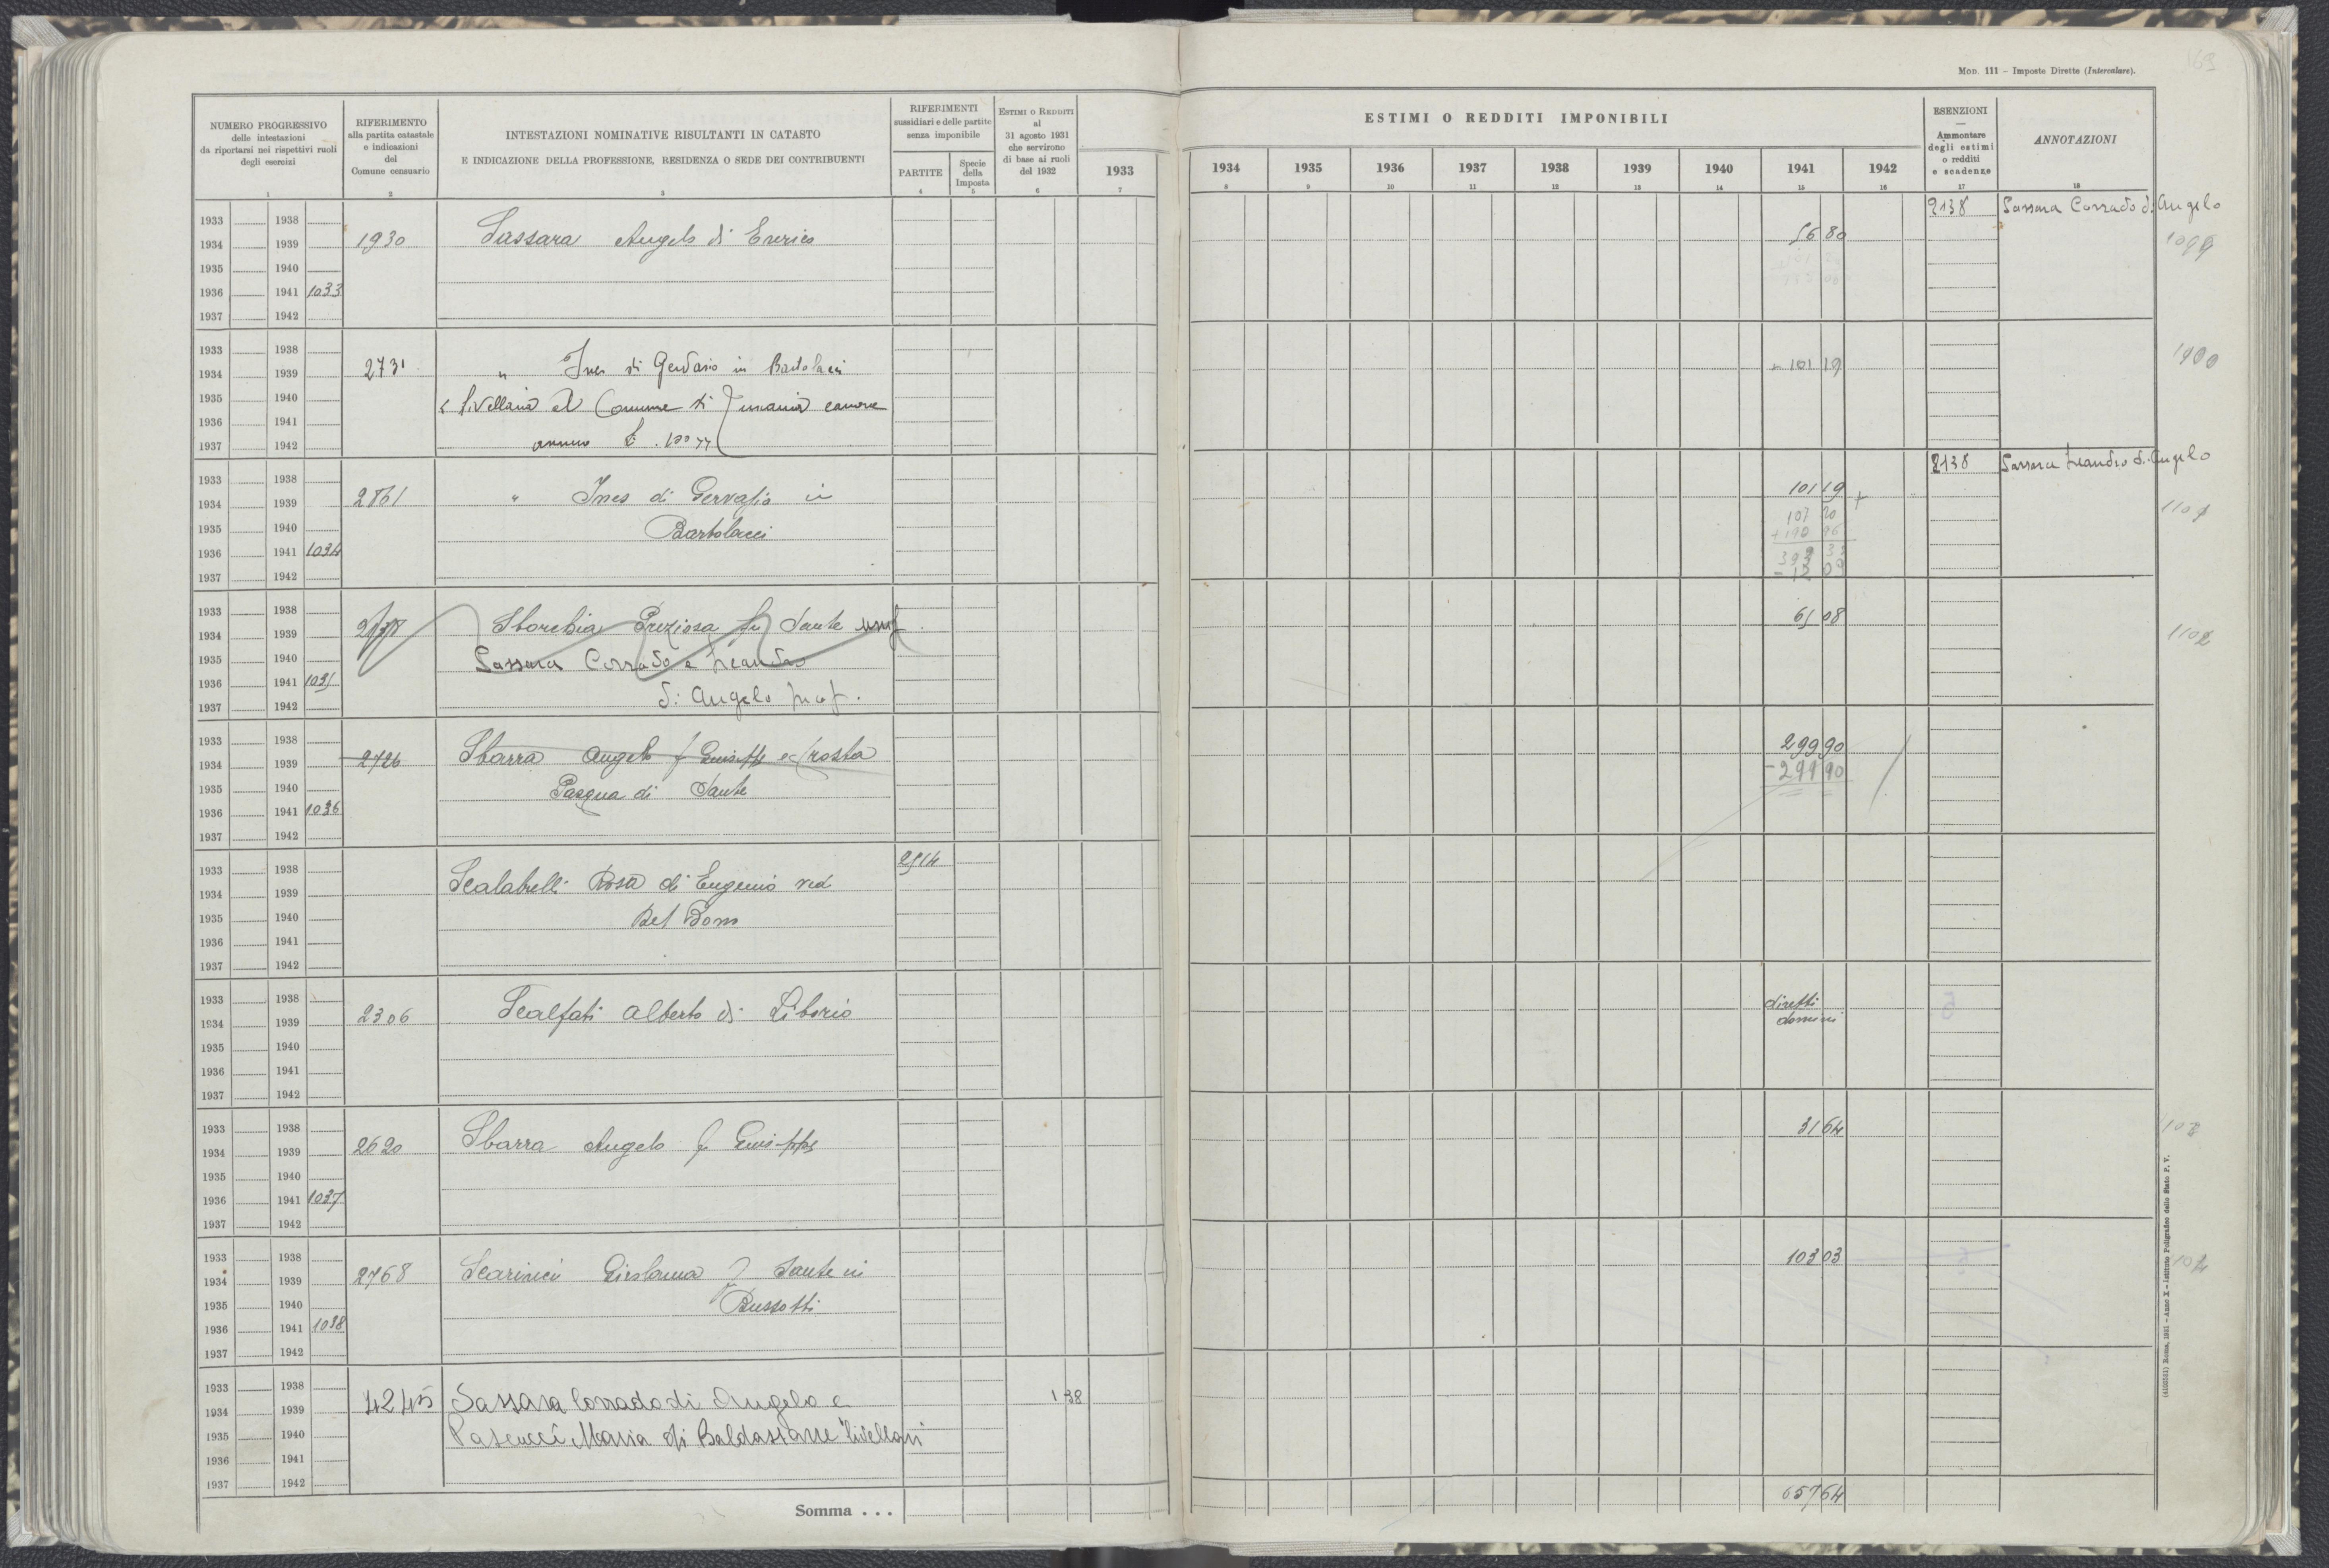 169
MOD. 111 – Imposte Dirette (Intercalare).
NUMERO PROGRESSIVO
delle intestazioni
da riportarsi nei rispettivi ruoli
degli esercizi
1
RIFERIMENTO
alla partita catastale
e indicazioni
del
Comune censuario
2
INTESTAZIONI NOMINATIVE RISULTANTI IN CATASTO
E INDICAZIONE DELLA PROFESSIONE, RESIDENZA O SEDE DEI CONTRIBUENTI
3
RIFERIMENTI
sussidiari e delle partite
senza imponibile
PARTITE
4
Specie
della
Imposta
5
ESTIMI O REDDITI
al
31 agosto 1931
che servirono
di base ai ruoli
del 1932
6
1933
7
ESTIMI O REDDITI IMPONIBILI
1934 1935 1936 1937 1938 1939 1940 1941 1942
8 9 10 11 12 13 14 15 16
ESENZIONI
—
Ammontare
degli estimi
o redditi
e scadenze
17
ANNOTAZIONI
18
1933 1938
2138 Sassara Corrado di Angelo
1934 1939 1930 Sassara Angelo di Enrico 56 80
1935 1940
1936 1941 1033
1937 1942
1933 1938
1934 1939 2731 " Ines di Gervasio in Bartolacci 101 19
1100
1935 1940 livellaria al Comune di canone
1936 1941
1937 1942 annuo £.
1933 1938
2138 Sassara Leandro di Angelo
1934 1939 2861 " Ines di Gervasio in 101 19 +
1935 1940 Bartolacci
1936 1941 1034
1937 1942
1933 1938
1934 1939 Sborchia Preziosa fu Sante usuf 65 08
1102
1935 1940 Sassara Corrado e Leandro
1936 1941 1035
1937 1942 di Angelo prop.
1933 1938
1934 1939 2726 Sbarra Angelo f Giuseppe e Crosta 299 90
1935 1940 Pasqua di Sante - 299 90
1936 1941 1036
1937 1942
1933 1938 2914
1934 1939 Scalabrelli Rosa di Eugenio ved
1935 1940 Del Bono
1936 1941
1937 1942
1933 1938
1934 1939 2306 Scalfati Alberto di Liborio diretti
domini
1935 1940
1936 1941
1937 1942
1933 1938
1934 1939 2620 Sbarra Angelo f Giuseppe 31 64
1935 1940
1936 1941 1037
1937 1942
1933 1938
1934 1939 2768 Scarinci Girolama f Sante in 103 03
1935 1940 Bussotti
1936 1941 1038
1937 1942
1933 1938
1934 1939 4245 Sassara Corrado di Angelo e 1 38
1935 1940 Pascucci Maria di Baldassarre livellari
1936 1941
1937 1942
Somma . . . 657 64
(4100551) Roma, 1931 – Anno X – Istituto Poligrafico dello Stato P. V.